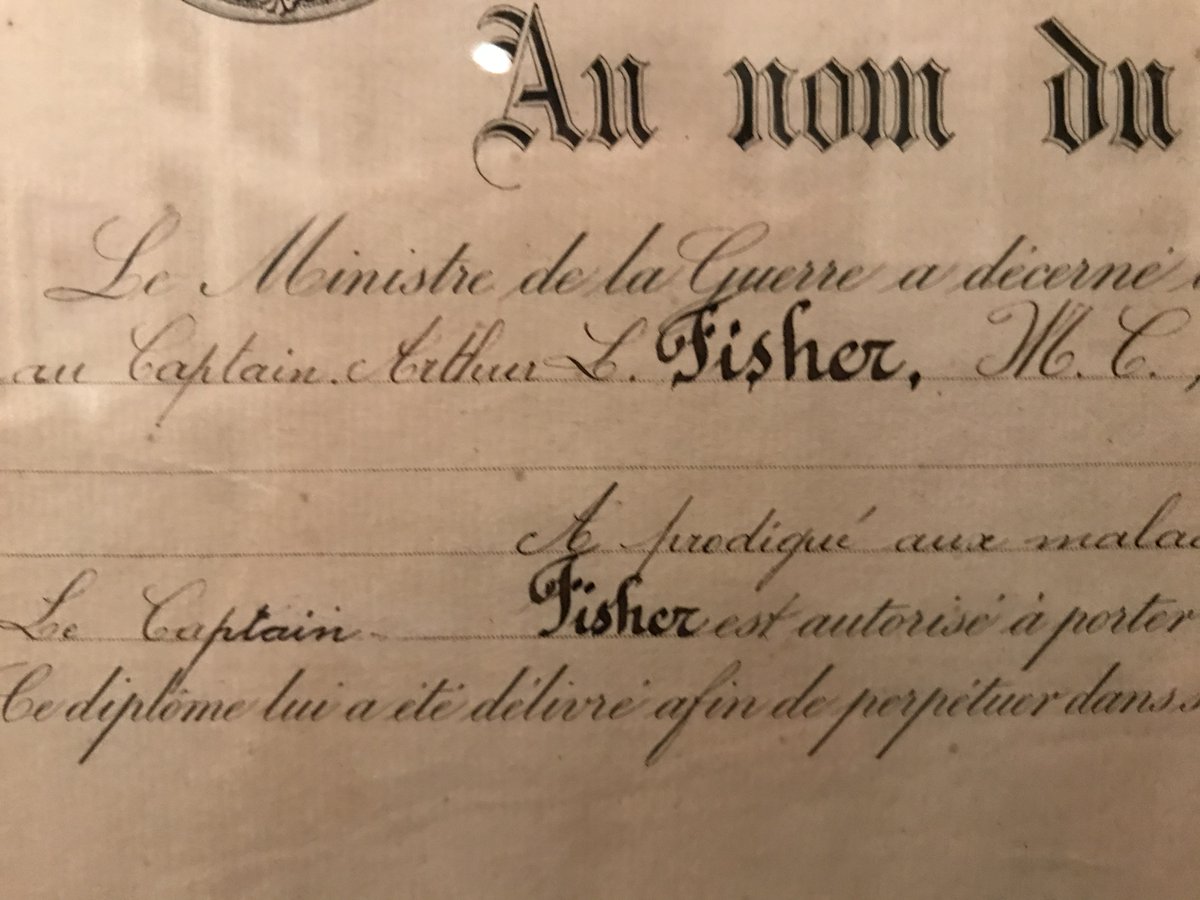 Au nom du
Le Ministre de la Guerre a décerné
au Captain. Arthur L. Fisher, M. C.,
A prodigué aux malad
Le Captain Fisher est autorisé à porter
Ce diplôme lui a été délivré afin de perpétuer dans s